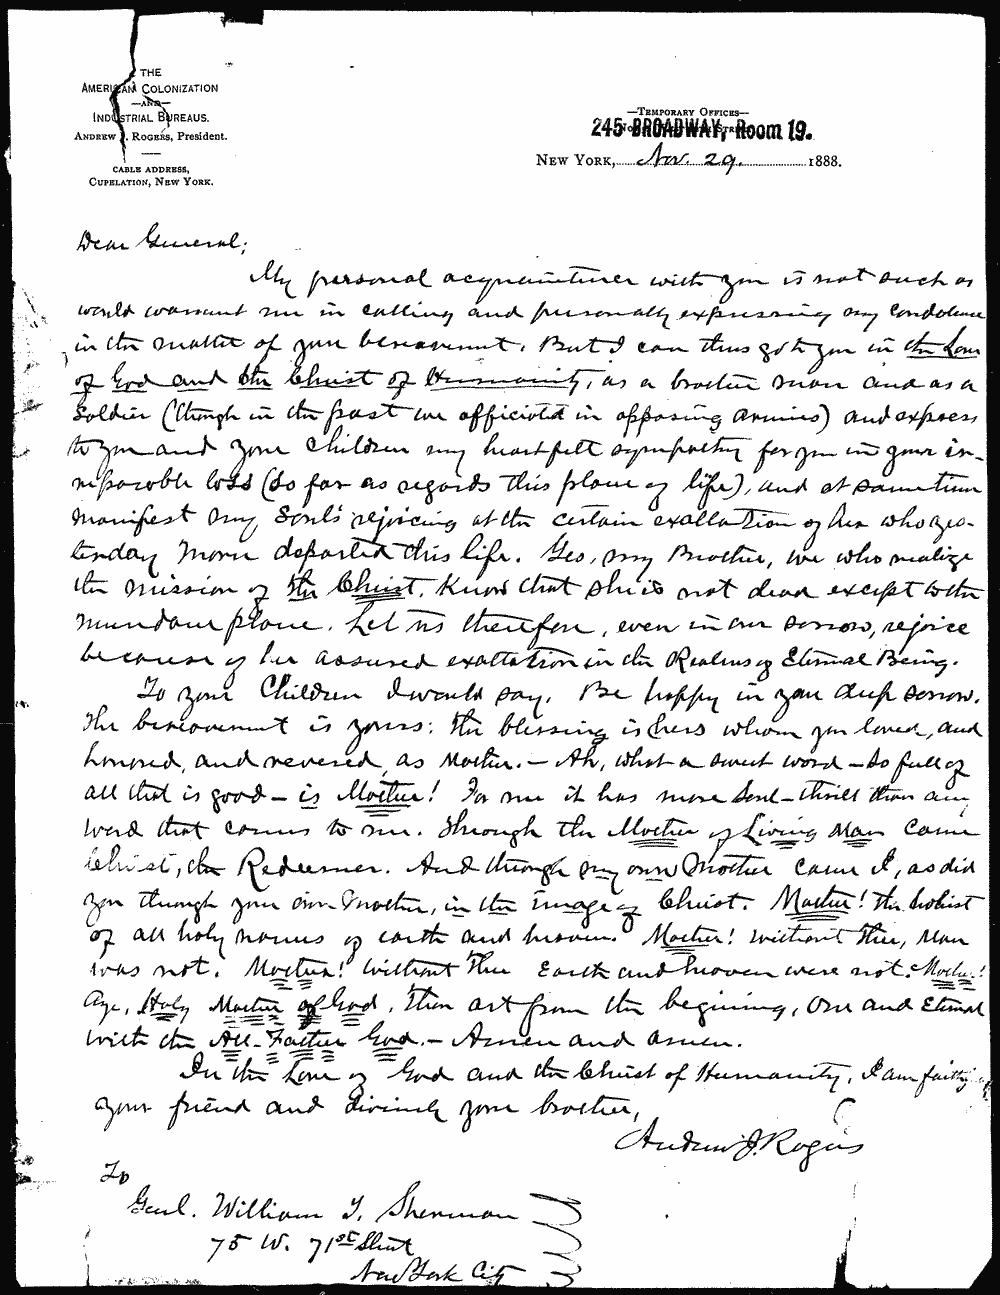 THE
AMERICAN COLONIZATION
—AND—
INDUSTRIAL BUREAUS.
ANDREW J. ROGERS, President.
CABLE ADDRESS,
CUPELATION, NEW YORK.
—TEMPORARY OFFICES—
245 BROADWAY, Room 19.
NEW YORK, Nov. 29. 1888.
Dear General;
My personal acquaintance with you is not such as
would warrant me in calling and personally expressing my condolence
in the matter of your bereavement. But I can thus go to you in the Love
of God and the Christ of Humanity, as a brother man and as a
Soldier (though in the past we officiated in opposing armies) and express
to you and your children my heartfelt sympathy for you in your ir-
reparable loss (so far as regards this plane of life), and at same time
manifest my Soul's rejoicing at the certain exaltation of her who yes-
terday morn departed this life. Yes, my Brother, we who realize
the mission of the Christ, Know that she is not dead except to the
mundane plane. Let us therefore, even in our sorrow, rejoice
because of her assured exaltation in the Realms of Eternal Being.
To your Children I would say, Be happy in your deep sorrow.
The bereavement is yours: the blessing is hers whom you loved, and
honored, and revered, as Mother. — Ah, what a sweet word — so full of
all that is good — is Mother! For me it has more soul-thrill than any
word that comes to me. Through the Mother of Living Man came
Christ, the Redeemer. And through my own Mother came I, as did
you through your own Mother, in the image of Christ. Mother! The holiest
of all holy names of earth and heaven. Mother! Without Thee, Man
was not. Mother! Without Thee Earth and heaven were not. Mother!
Aye, Holy Mother of God, Thou art from the begining, One and Eternal
with the All-Father God. — Amen and amen.
In the Love of God and the Christ of Humanity, I am faithfully
your friend and divinely your brother,
Andrew J. Rogers
To
Genl. William T. Sherman
75 W. 71st Street
New York City